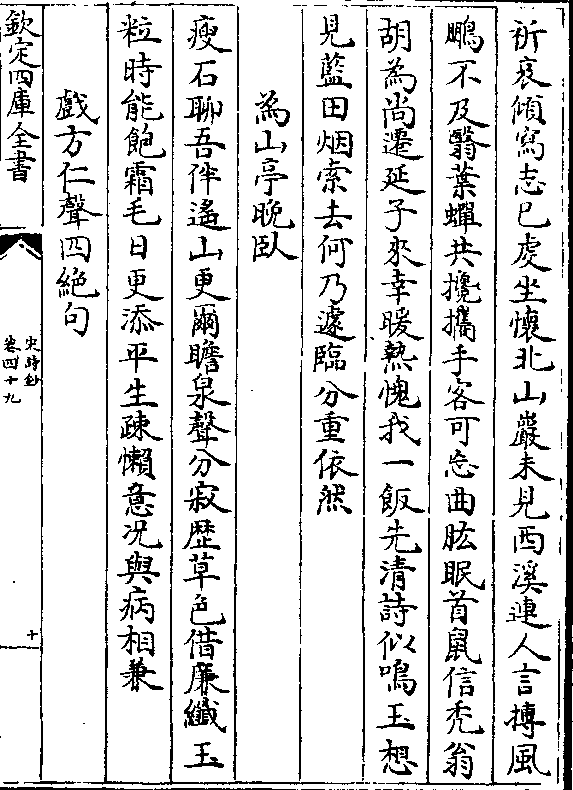 祈哀傾寫志已虔坐懷北山巖未見西溪連人言摶風
鵬不及翳葉蟬共攙攜手客可忘曲肱眠首鼠信禿翁
胡為尚遷延子來幸暖熱愧我一飯先清詩似鳴玉想
見藍田烟索去何乃遽臨分重依然
為山亭晚臥
瘦石聊吾伴遙山更爾瞻泉聲分寂歷草色借廉纖玉
粒時能飽霜毛日更添平生疎懶意况與病相兼
戲方仁聲四絶句
欽定四庫全書
宋詩鈔
卷四十九
十